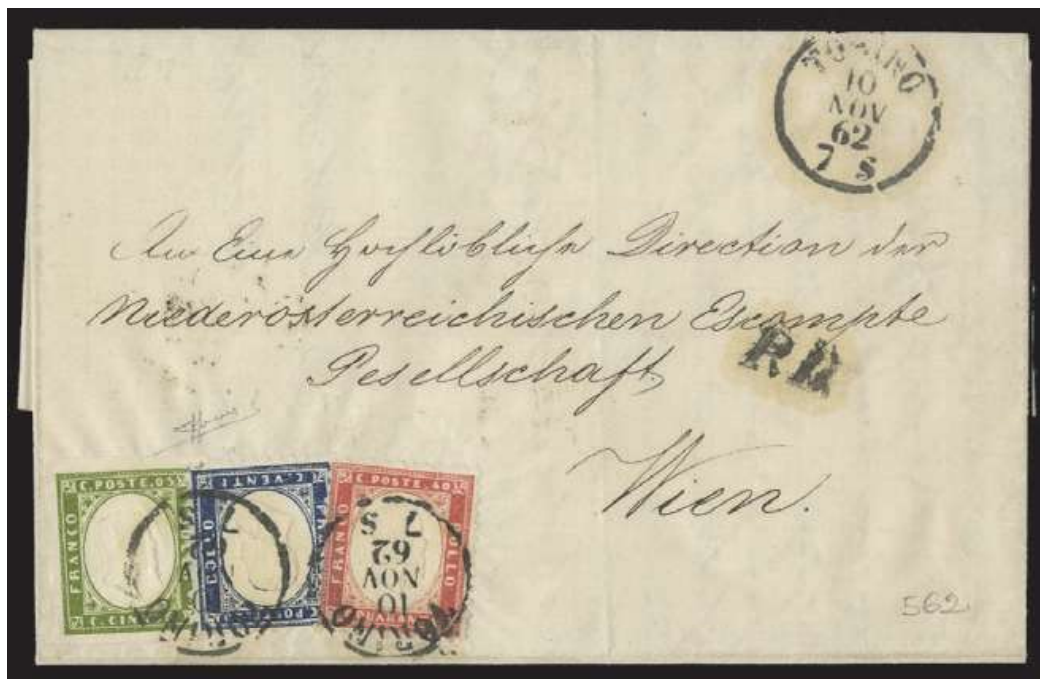 TORINO
10
NOV
62
7 S
An Eine Hochlöbliche Direction der
Niederösterreichischen Escompte
Gesellschaft
Wien.
P.D.
C. POSTE. 05
FRANCO
C. CIN
C. VENTI
FRANCO BOLLO
C. POSTE
C. POSTE. 40
FRANCO
BOLLO
QUARAN
7 S
62
NOV
10
TORINO
562